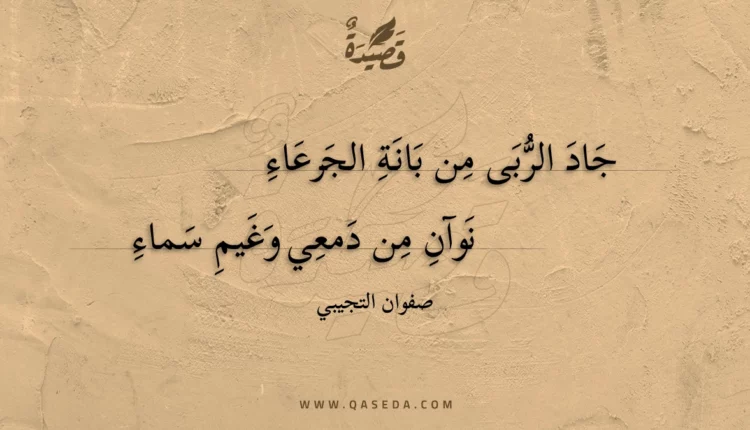 قَصِيدَةٌ
جَادَ الرُّبَى مِن بَانَةِ الجَرعَاءِ
نَوآنِ مِن دَمعِي وَغَيمِ سَماءِ
صفوان التجيبي
WWW.QASEDA.COM